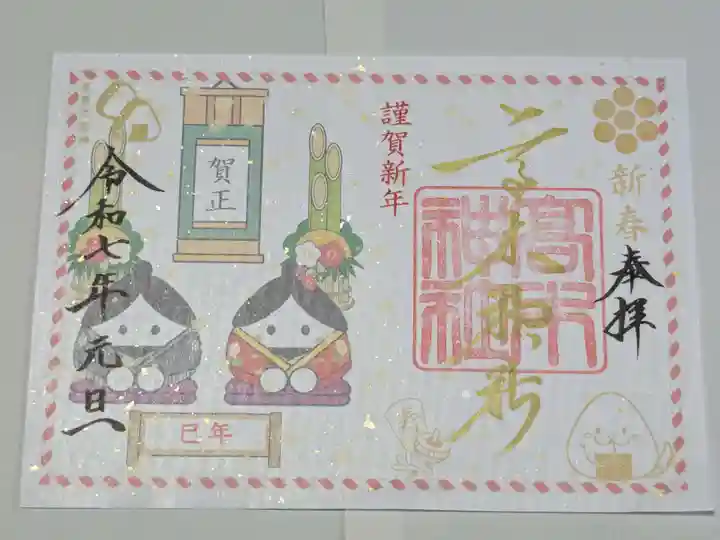 新春
奉拝
高木神社
高木神社
謹賀新年
賀正
令和七年元旦
巳年